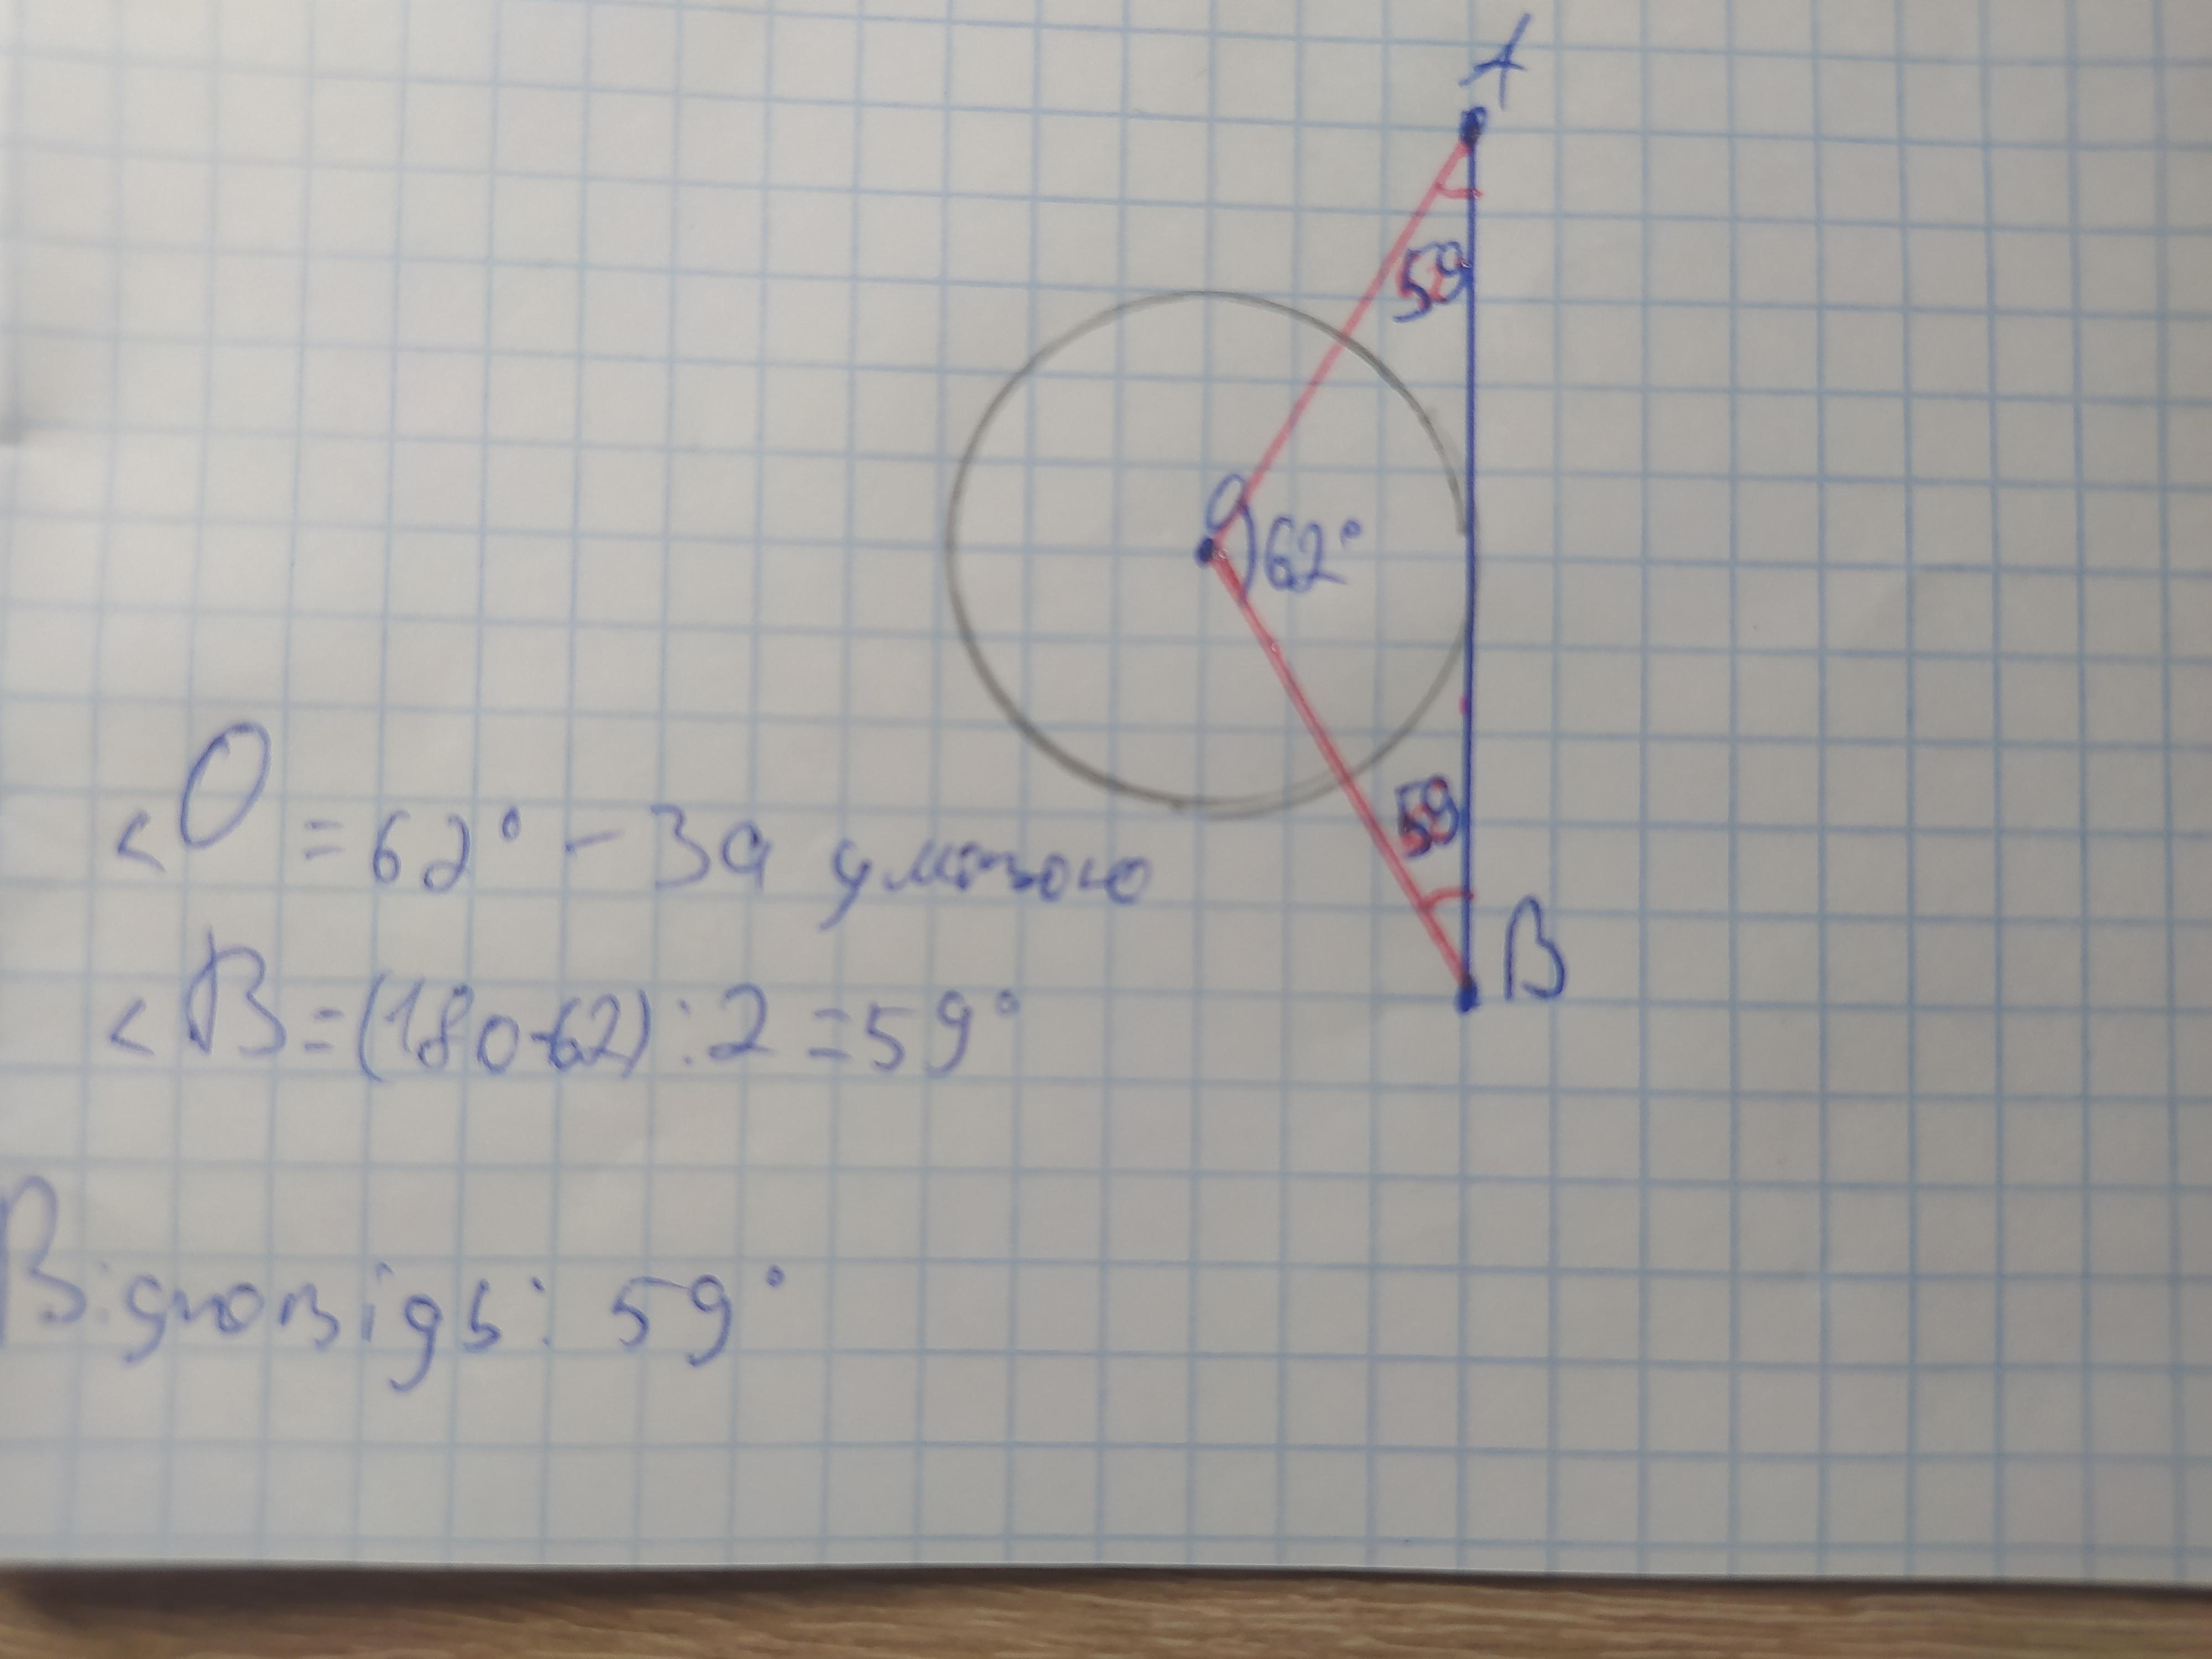 A
59
O
62°
59
B
<O = 62° - За умовою
<B = (180-62) : 2 = 59°
Відповідь: 59°